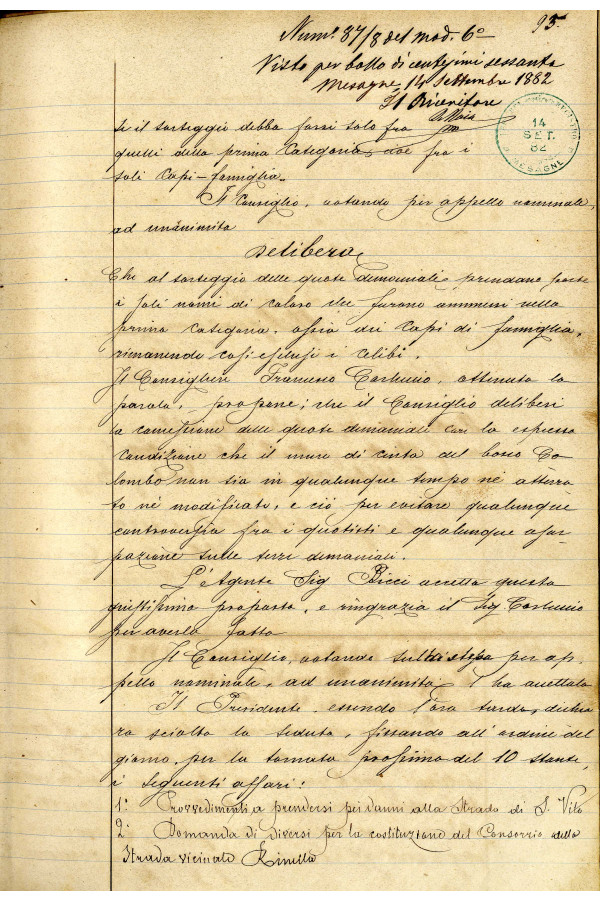 Num.º 87/8 del mod. 6º
95.
Visto per bollo di centesimi sessanta
Mesagne, 14 Settembre 1882
Il Ricevitore
14
SET.
82
MESAGNE
se il sorteggio debba farsi solo fra
quelli della prima Categoria, cioè fra i
soli Capi-famiglia.
Il Consiglio, votando per appello nominale,
ad unanimità
Delibera
Che al sorteggio delle quote demaniali prendano parte
i soli nomi di coloro che furono ammessi nella
prima categoria, ossia dei Capi di famiglia,
rimanendo così esclusi i celibi.
Il Consigliere Francesco Carluccio, ottenuta la
parola, propone; che il Consiglio deliberi
la concessione delle quote demaniali con la espressa
condizione che il muro di cinta del bosco Co-
lombo non sia in qualunque tempo nè atterra-
to nè modificato, e ciò per evitare qualunque
controversia fra i quotisti e qualunque usur-
pazione sulle terre demaniali.
L'Agente Sig. Bocci accetta questa
giustissima proposta, e ringrazia il Sig. Carluccio
per averla fatta
Il Consiglio, votando sulla stessa per ap-
pello nominale, ad unanimità l'ha accettata
Il Presidente, essendo l'ora tarda, dichia-
ra sciolta la seduta, fissando all'ordine del
giorno per la tornata prossima del 10 stante,
i seguenti affari:
1.º Provvedimenti a prendersi pei danni alla Strada di S. Vito
2.º Domanda di diversi per la costituzione del Consorzio della
Strada vicinale Rinella